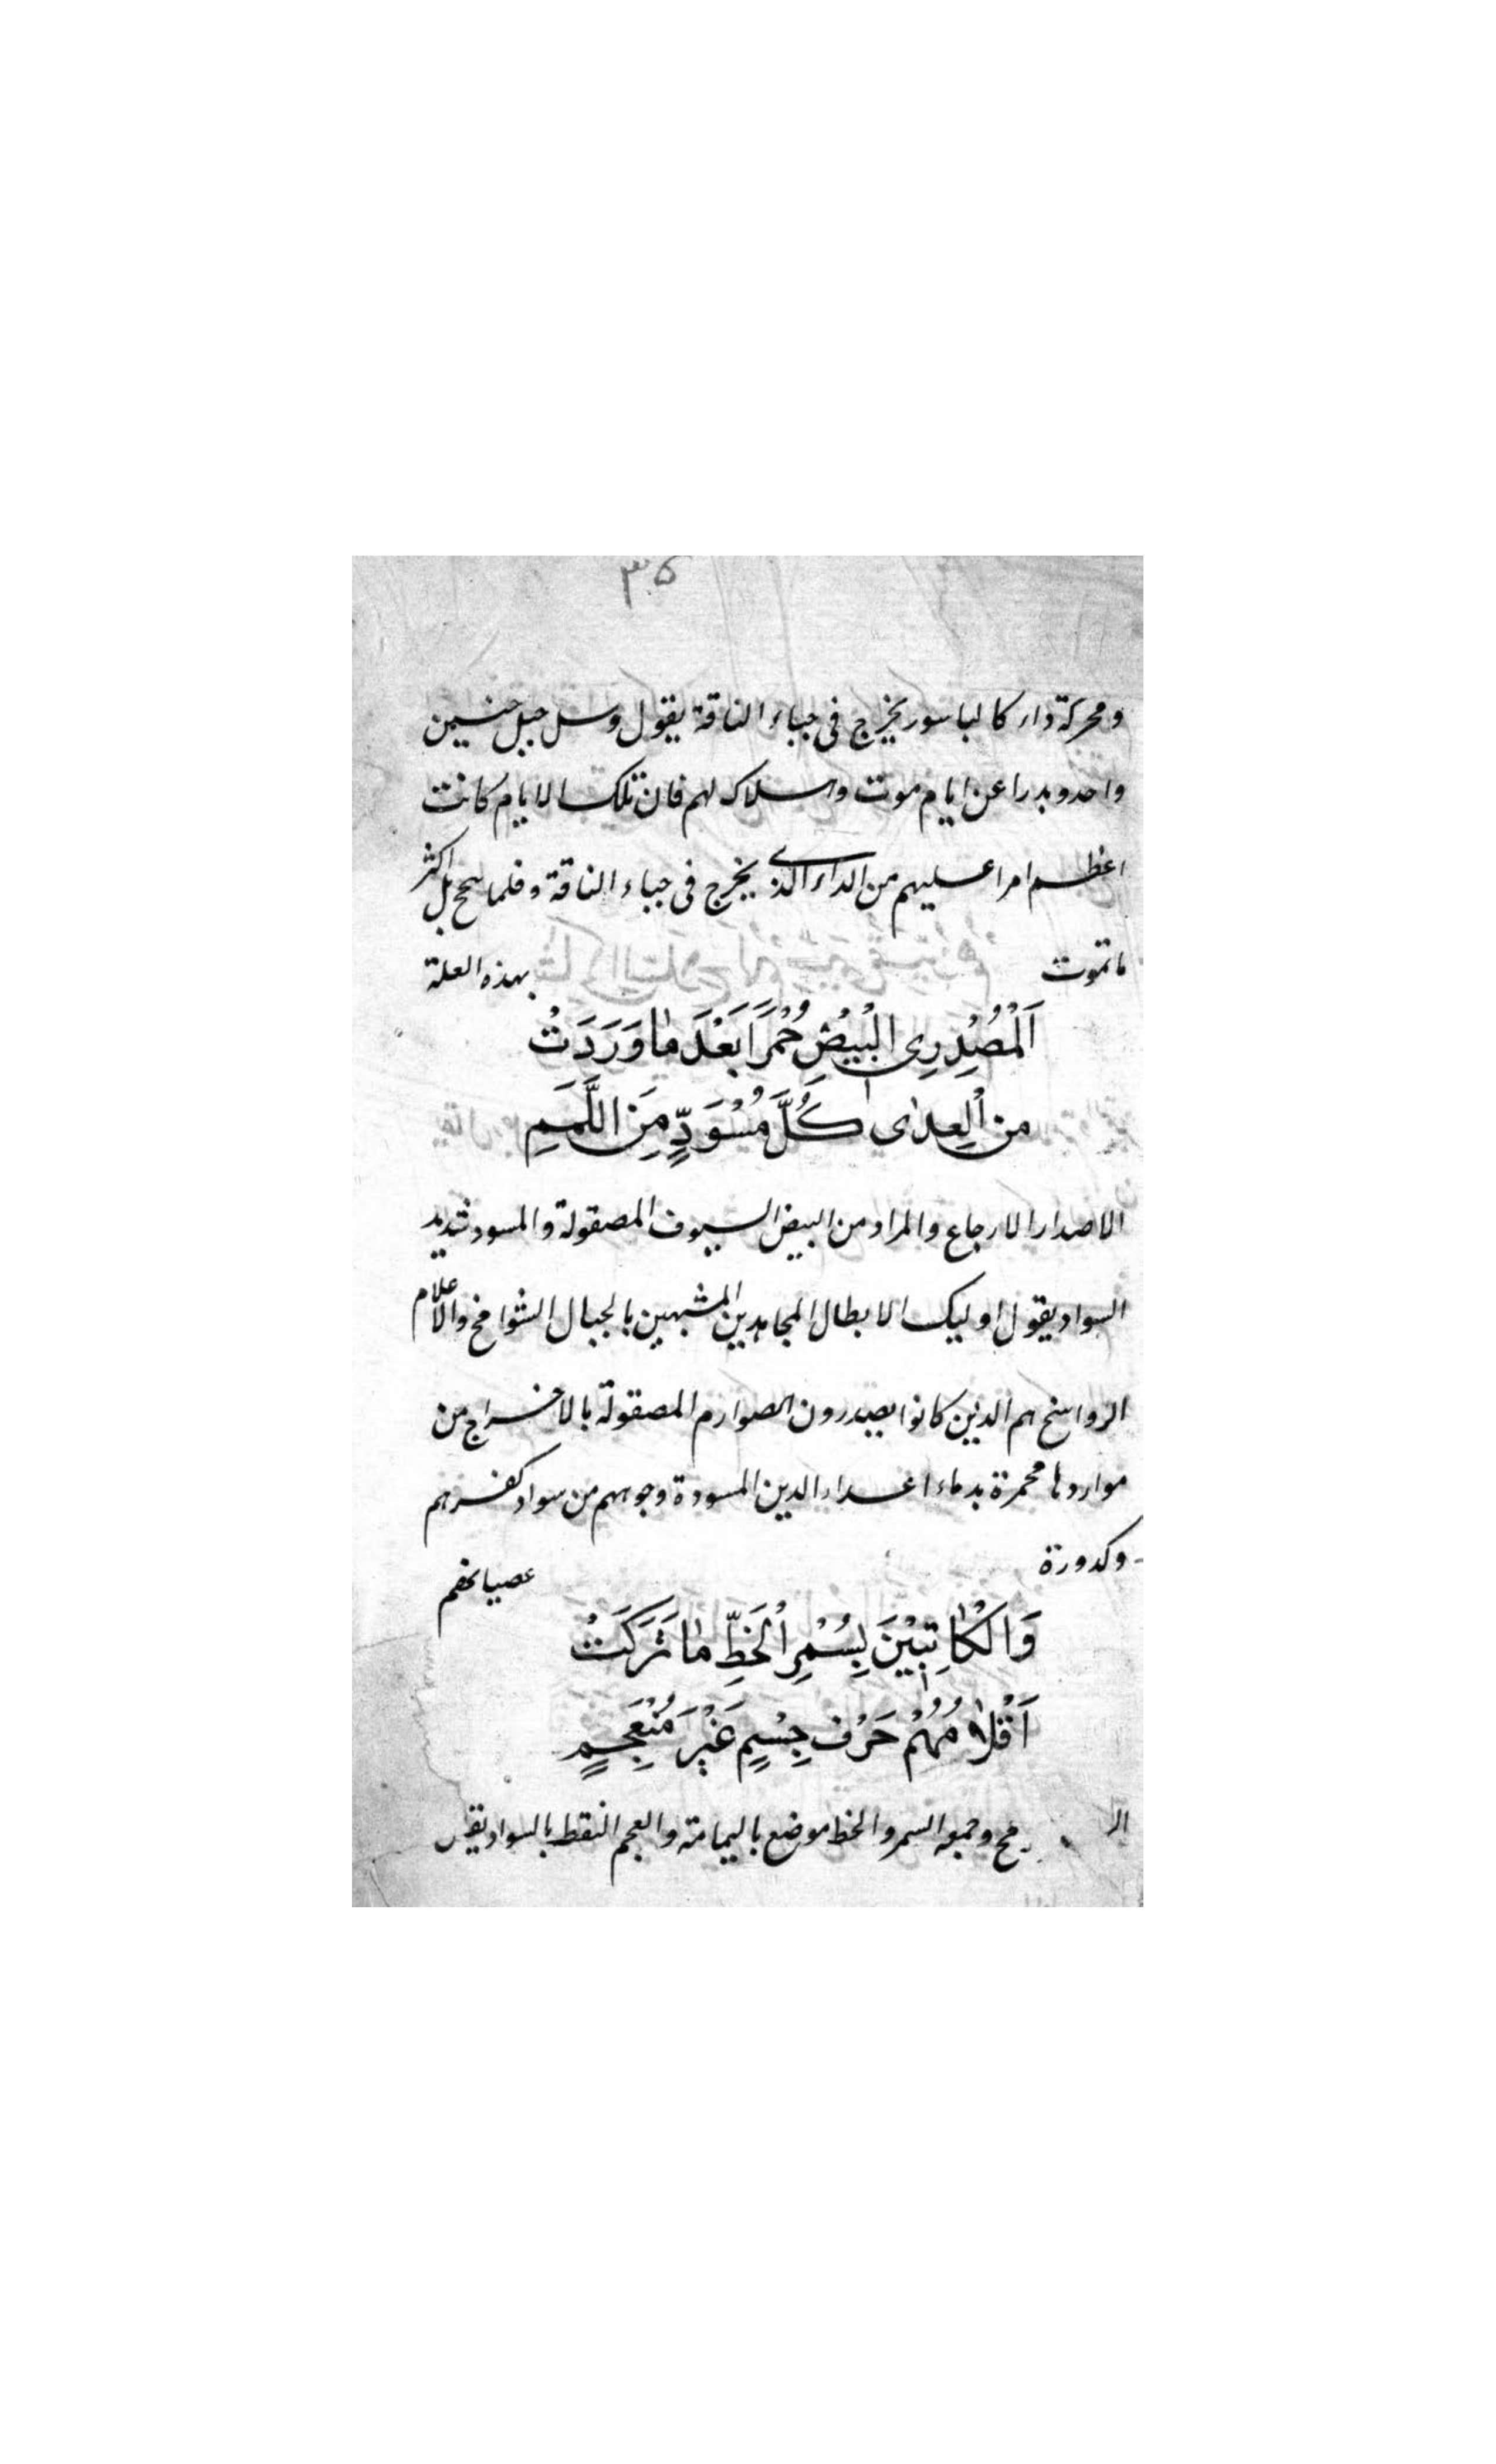 ٣٥
ومحركة داء كالباسور يخرج فى حياء الناقة يقول وسل جبل حنين
واحد وبدرا عن ايام موت وهلاك لهم فان تلك الايام كانت
اعظم امرا عليهم من الداء الذى يخرج فى حياء الناقة وقلما يصح بل اكثر
ما تموت بهذه العلة
اَلْمُصْدِرِى الْبِيْضِ حُمْرًا بَعْدَ مَا وَرَدَتْ
مِنَ الْعِدٰى كُلَّ مُسْوَدٍّ مِنَ اللَّمَمِ
الاصدار الارجاع والمراد من البيض السيوف المصقولة والمسود شديد
السواد يقول اوليك الابطال المجاهدين المشبهين بالجبال الشوامخ والاعلام
الرواسخ هم الذين كانوا يصدرون الصوارم المصقولة بالاخراج من
مواردها محمرة بدماء اعداء الدين المسودة وجوههم من سواد كفرهم
وكدورة عصيانهم
وَالْكَاتِبِيْنَ بِسُمْرِ الْخَطِّ مَا تَرَكَتْ
اَقْلَامُهُمْ حَرْفَ جِسْمٍ غَيْرَ مُنْعَجِمِ
مح وجمعه السمر والخط موضع باليمامة والعجم النقط بالسواد يق